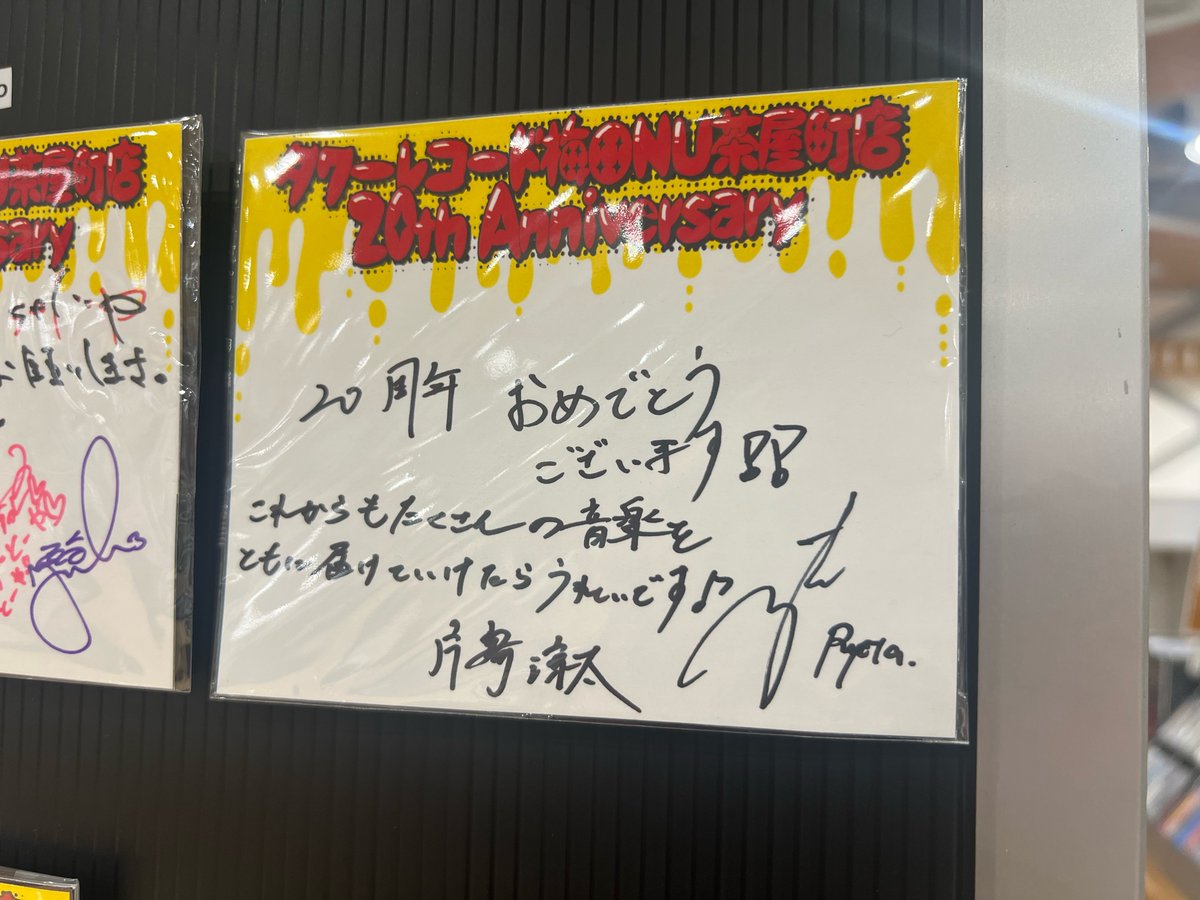 タワーレコード梅田NU茶屋町店
20th Anniversary
20周年 おめでとう
ございます!!
これからもたくさんの音楽を
ともに届けていけたらうれしいです♪
片寄涼太
Ryota.
茶屋町店
sary
お願いします。